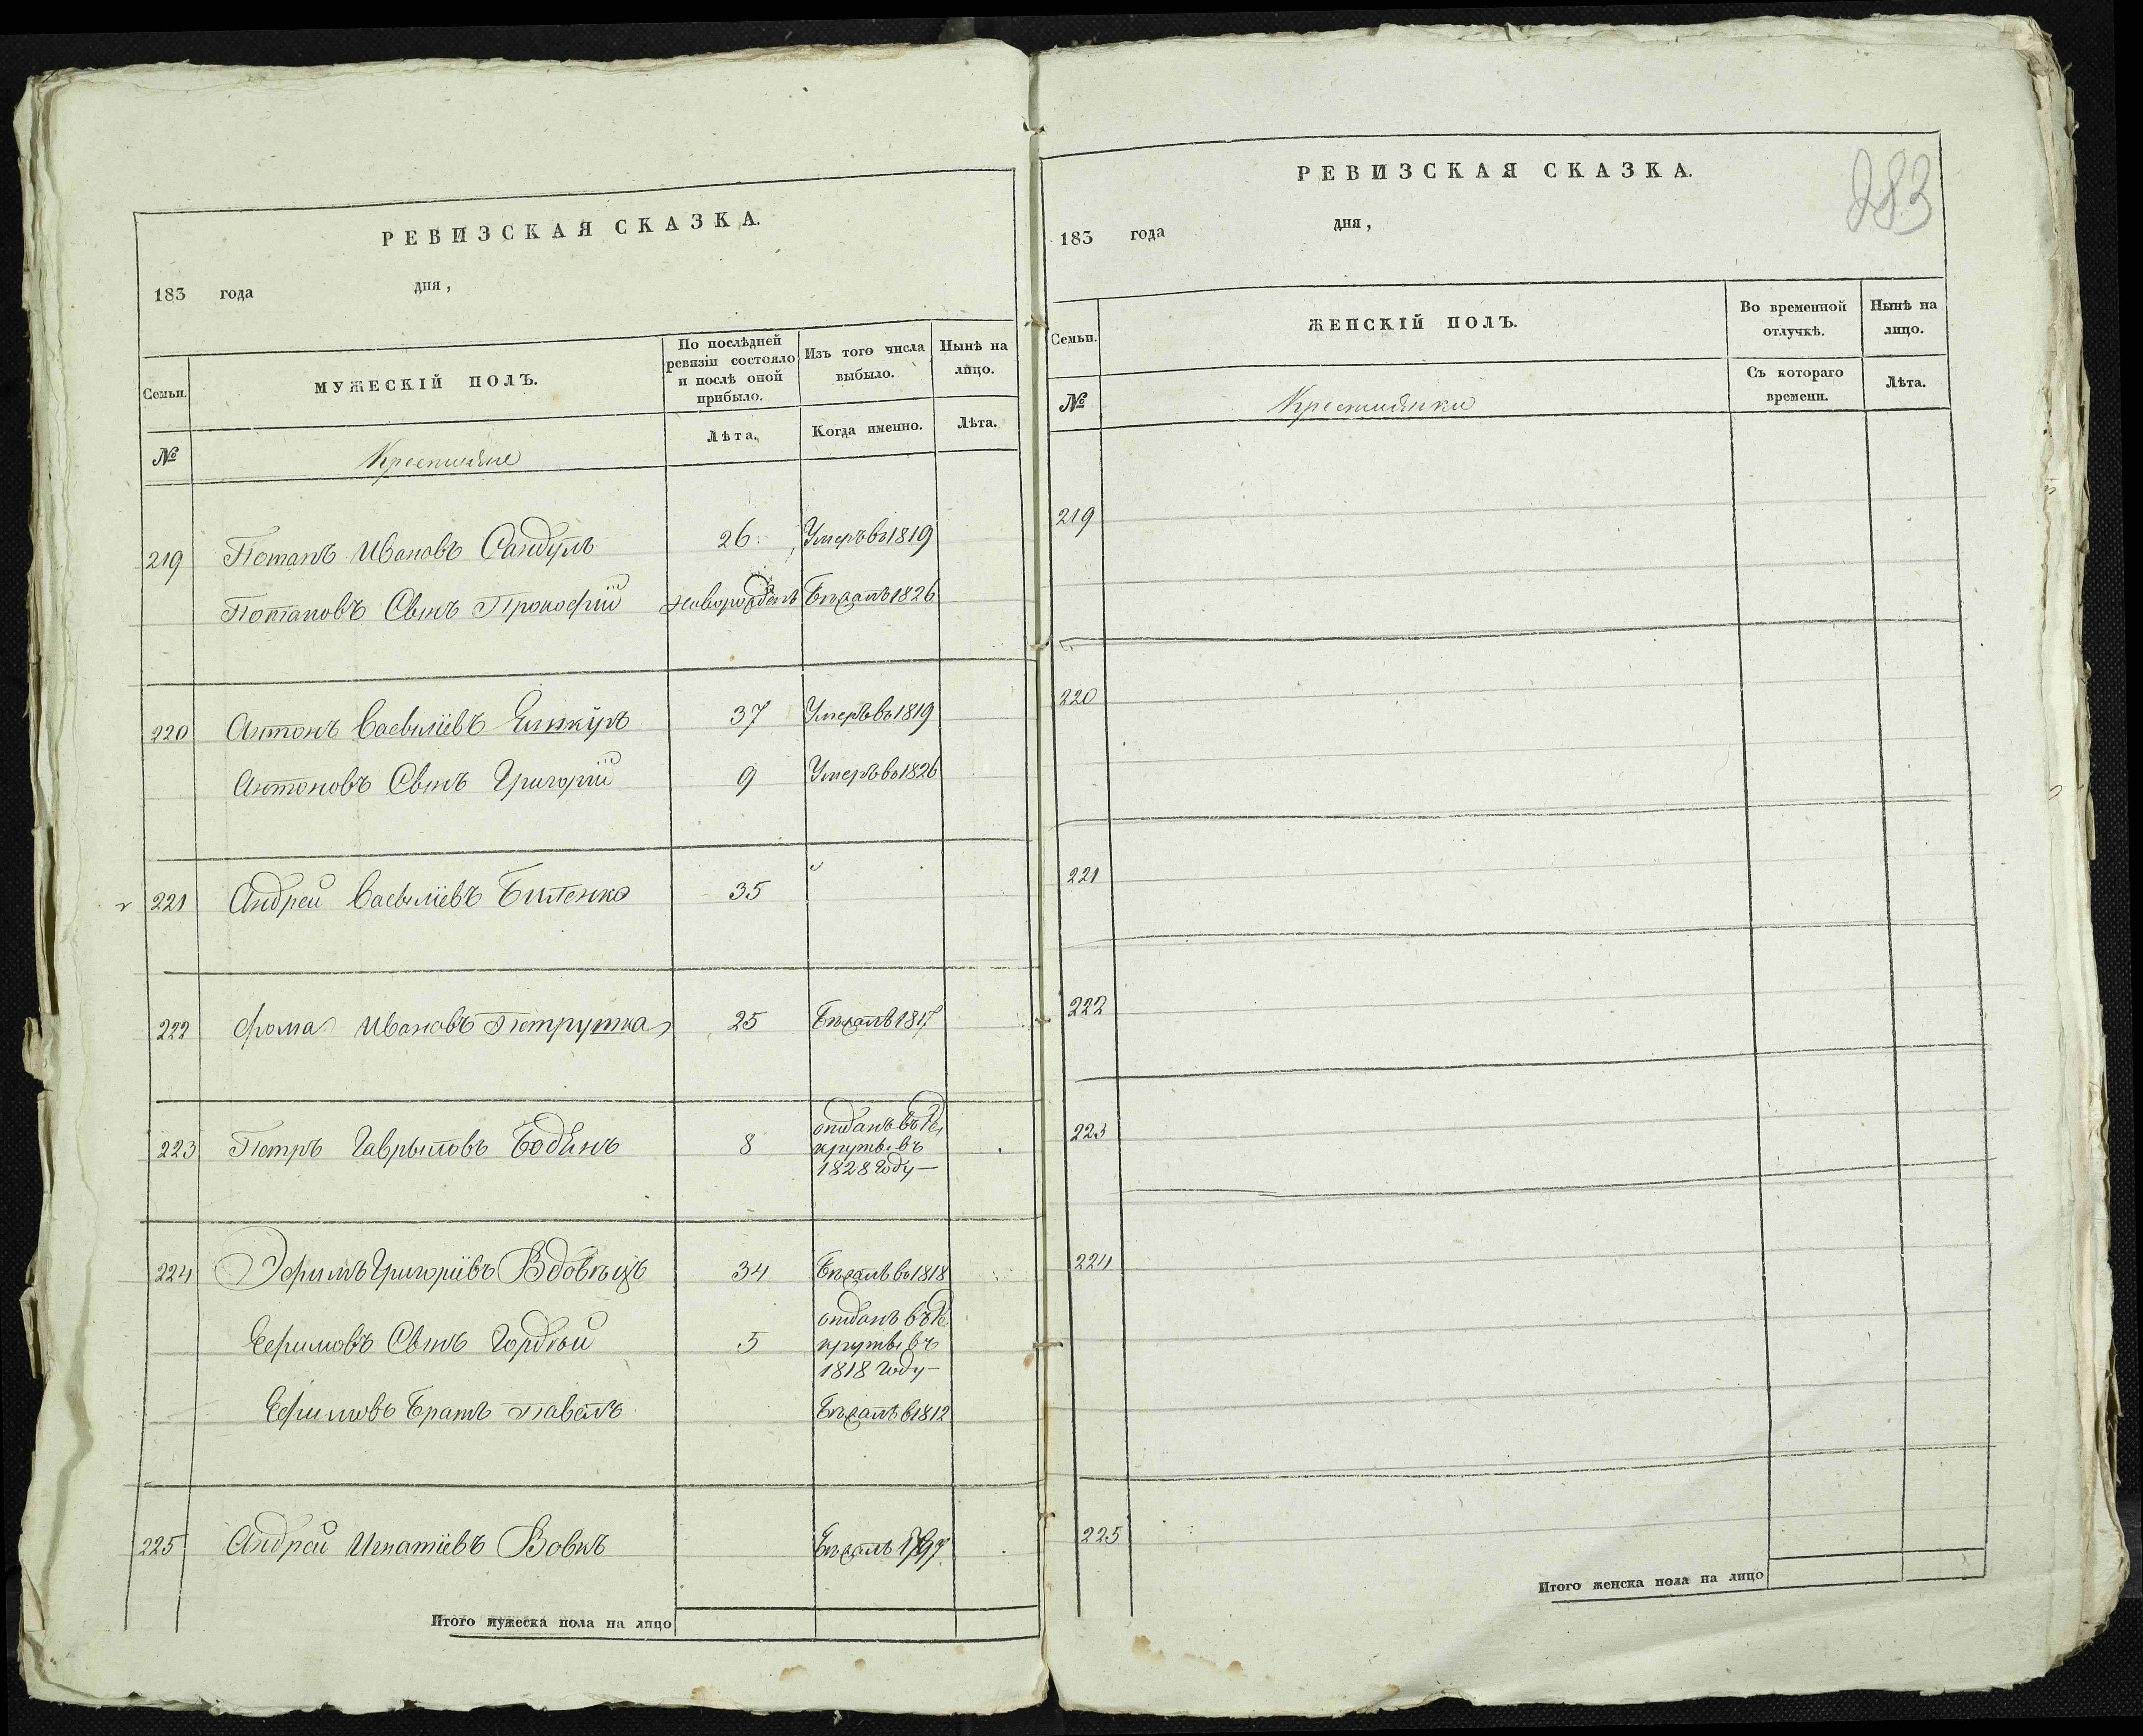 РЕВИЗСКАЯ СКАЗКА.
183 года дня,
Семьи.
МУЖЕСКІЙ ПОЛЪ.
По послѣдней ревизіи состояло и послѣ оной прибыло.
Изъ того числа выбыло.
Нынѣ на лицо.
№
Крестьяне
Лѣта.
Когда именно.
Лѣта.
219 Потапъ Ивановъ Сандулъ 26 Умеръ въ 1819
Потаповъ Сынъ Прокофій новорожденъ Бѣжалъ 1826
220 Антонъ Васильевъ 37 Умеръ въ 1819
Антоновъ Сынъ Григорій 9 Умеръ въ 1826
221 Андрей Васильевъ Биленко 35
222 Фома Ивановъ Петрушка 25 Бѣжалъ 1817
223 Петръ Гавриловъ Бодянъ 8 отданъ въ Ре
крутъ въ
1828 Году
224 Эфимъ Григоріевъ Вдовѣцъ 34 Бѣжалъ въ 1818
Ефимовъ Сынъ Гордѣй 5 отданъ въ Ре
круты въ
1818 Году
Ефимовъ Братъ Павелъ Бѣжалъ в 1812
225 Андрей Игнатіевъ Вовкъ Бѣжалъ 1797
Итого мужеска пола на лицо
РЕВИЗСКАЯ СКАЗКА.
283
183 года дня,
Семьи.
ЖЕНСКІЙ ПОЛЪ.
Во временной отлучкѣ.
Нынѣ на лицо.
№
Крестьянки
Съ котораго времени.
Лѣта.
219
220
221
222
223
224
225
Итого женска пола на лицо